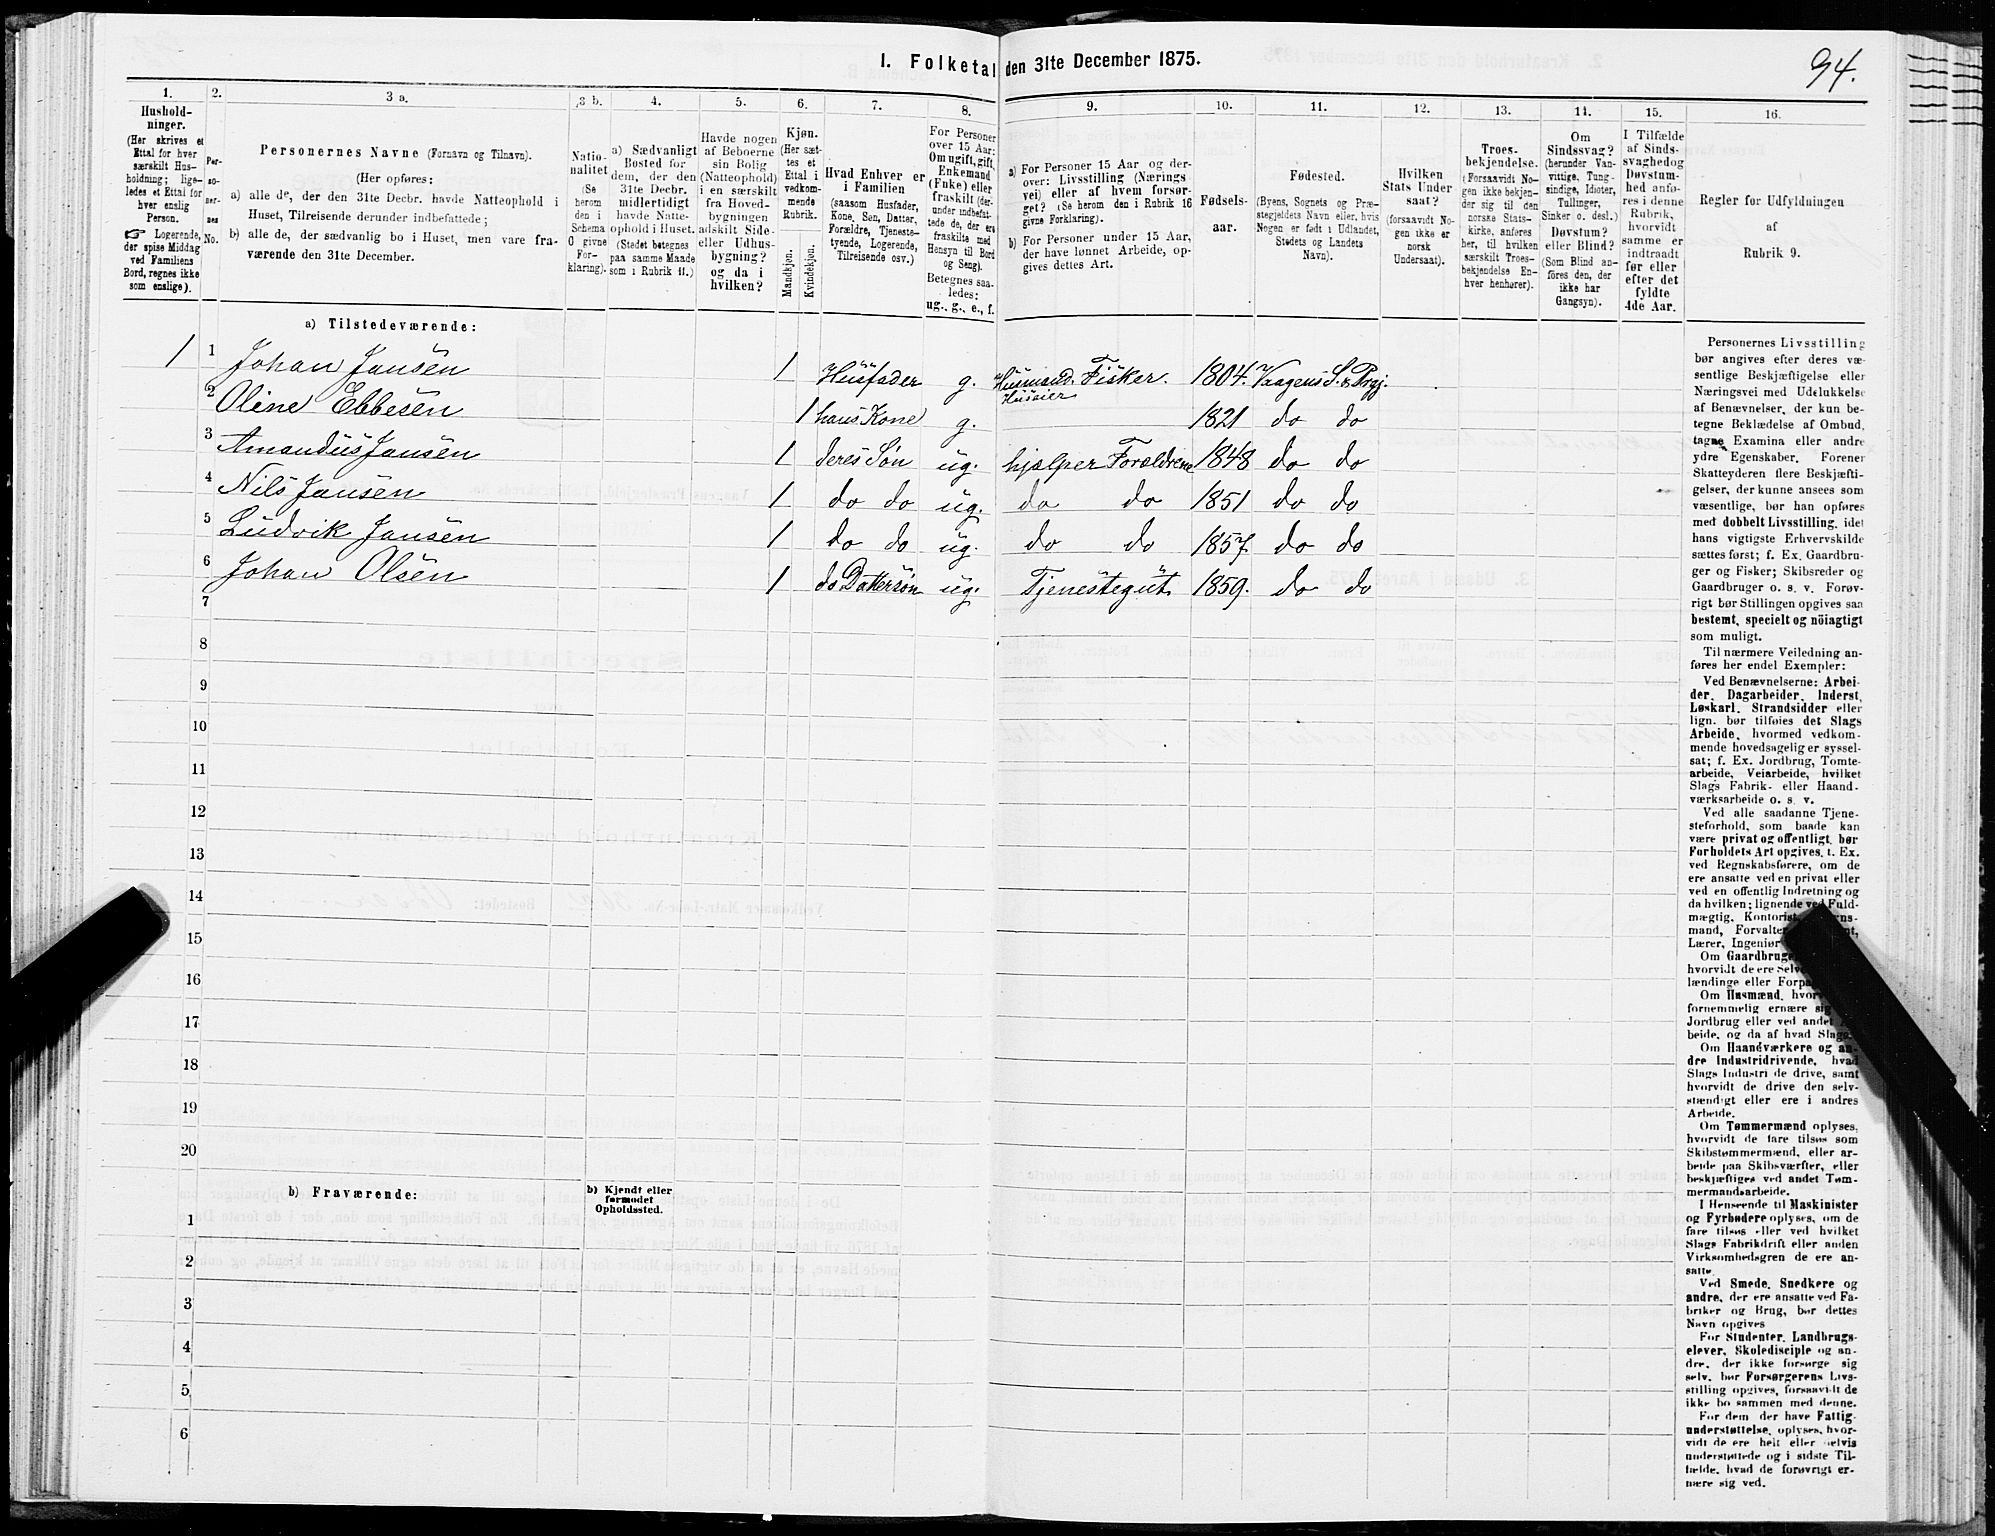 I. Folketal den 31te December 1875.
94.
1. 2. 3 a. 3 b. 4. 5. 6. 7. 8. 9. 10. 11. 12. 13. 14. 15. 16.
Hushold-
ninger.
(Her skrives et
Ettal for hver
særskilt Hus-
holdning; lige-
ledes et Ettal for
hver enslig
Person.
☞ Logerende,
der spise Middag
ved Familiens
Bord, regnes ikke
som enslige).
Per-
so-
ner-
nes
No.
Personernes Navne (Fornavn og Tilnavn).
(Her opføres:
a) alle de, der den 31te Decbr. havde Natteophold i
Huset, Tilreisende derunder indbefattede;
b) alle de, der sædvanlig bo i Huset, men vare fra-
værende den 31te December.
Natio-
nalitet
(Se
herom
den i
Schema
O givne
For-
klaring).
a) Sædvanligt
Bosted for
dem, der den
31te Decbr.
midlertidigt
havde Natte-
ophold i Huset.
(Stedet betegnes
paa samme Maade
som i Rubrik 11.)
Havde nogen
af Beboerne
sin Bolig
(Natteophold)
i en særskilt
fra Hoved-
bygningen
adskilt Side-
eller Udhus-
bygning?
og da i
hvilken?
Kjøn.
(Her sæt-
tes et
Ettal i
vedkom-
mende
Rubrik.
Mandkjøn.
Kvindekjøn.
Hvad Enhver er
i Familien
(saasom Husfader,
Kone, Søn, Datter,
Forældre, Tjeneste-
tyende, Logerende,
Tilreisende osv.)
For Personer
over 15 Aar:
Om ugift, gift,
Enkemand
(Enke) eller
fraskilt (der-
under indbefat-
tede de, der ere
fraskilte med
Hensyn til Bord
og Seng).
Betegnes saa-
ledes:
ug., g., e., f.
a) For Personer 15 Aar og der-
over: Livsstilling (Nærings-
vei) eller af hvem forsør-
get? (Se herom den i Rubrik 16
givne Forklaring).
b) For Personer under 15 Aar,
der have lønnet Arbeide, op-
gives dettes Art.
Fødsels-
aar.
Fødested.
(Byens, Sognets og Præ-
stegjeldets Navn eller, hvis
Nogen er født i Udlandet,
Stedets og Landets
Navn).
Hvilken
Stats Under
saat?
(forsaavidt No-
gen ikke er
norsk
Undersaat).
Troes-
bekjendelse.
(Forsaavidt No-
gen ikke bekjen-
der sig til den
norske Stats-
kirke, anføres
her, til hvilken
særskilt Troes-
bekjendelse En-
hver henhører).
Om
Sindssvag?
(herunder Van-
vittige, Tung-
sindige, Idioter,
Tullinger,
Sinker o. desl.)
Døvstum?
eller Blind?
(Som Blind an-
føres den, der
ikke har
Gangsyn).
I Tilfælde
af Sinds-
svaghed og
Døvstum-
hed anfø-
res i denne
Rubrik,
hvorvidt
samme er
indtraadt
før eller
efter det
fyldte
4de Aar.
Regler for Udfyldningen
af
Rubrik 9.
a) Tilstedeværende:
1 1 Johan Jansen 1 Husfader g. Husmand. Fisker. Huseier 1804. Vaagens S. & Prgj.
2 Oline Ebbesen 1 hans Kone g. 1821 do do
3 Amandus Jansen 1 deres Søn ug. hjælper Forældrene 1848 do do
4 Nils Jansen 1 do do ug. do do 1851 do do
5 Ludvik Jansen 1 do do ug. do do 1857 do do
6 Johan Olsen 1 do Dattersøn ug. Tjenestegut 1859. do do
7
8
9
10
11
12
13
14
15
16
17
18
19
20
b) Fraværende:
b) Kjendt eller
formodet
Opholdssted.
1
2
3
4
5
6
Personernes Livsstilling
bør angives efter deres væ-
sentlige Beskjæftigelse eller
Næringsvei med Udelukkelse
af Benævnelser, der kun be-
tegne Beklædelse af Ombud,
tagne Examina eller andre
ydre Egenskaber. Forener
Skatteyderen flere Beskjæfti-
gelser, der kunne ansees som
væsentlige, bør han opføres
med dobbelt Livsstilling, idet
hans vigtigste Erhvervskilde
sættes først; f. Ex. Gaardbru-
ger og Fisker; Skibsreder og
Gaardbruger o. s. v. Forøv-
rigt bør Stillingen opgives saa
bestemt, specielt og nöiagtigt
som muligt.
Til nærmere Veiledning an-
føres her endel Exempler:
Ved Benævnelserne: Arbei-
der, Dagarbeider, Inderst,
Løskarl, Strandsidder eller
lign. bør tilføies det Slags
Arbeide, hvormed vedkom-
mende hovedsagelig er syssel-
sat; f. Ex. Jordbrug, Tomte-
arbeide, Veiarbeide, hvilket
Slags Fabrik- eller Haand-
værksarbeide o. s. v.
Ved alle saadanne Tjene-
steforhold, som baade kan
være privat og offentligt, bør
Forholdets Art opgives, t. Ex.
ved Regnskabsførere, om de
ere ansatte ved en privat eller
ved en offentlig Indretning og
da hvilken; lignende ved Fuld-
mægtig, Kontorist,
mand, Forvalter
Lærer, Ingeniør
Om Gaardbruge
hvorvidt de ere Selv
lændinge eller Forpa
Om Husmænd, hvor
fornemmelig ernære sig
Jordbrug eller ved andet
beide, og da af hvad Slags.
Om Haandværkere og an-
dre Industridrivende, hvad
Slags Industri de drive, samt
hvorvidt de drive den selv-
stændigt eller ere i andres
Arbeide.
Om Tømmermænd oplyses,
hvorvidt de fare tilsøs som
Skibstømmermænd, eller ar-
beide paa Skibsværfter, eller
beskjæftiges ved andet Tøm-
mermandsarbeide.
I Henseende til Maskinister
og Fyrbødere oplyses, om de
fare tilsøs eller ved hvilket
Slags Fabrikdrift eller anden
Virksomhedsgren de ere an-
satte.
Ved Smede, Snedkere og
andre, der ere ansatte ved Fa-
briker og Brug, bør dettes
Navn opgives
For Studenter, Landbrugs-
elever, Skoledisciple og an-
dre, der ikke forsørge sig
selv, bør Forsørgerens Livs-
stilling opgives, forsaavidt de
ikke bo sammen med denne.
For dem der have Fattig-
understøttelse, oplyses, hvor-
vidt de ere helt eller delvis
understøttede og i sidste Til-
fælde, hvad de forøvrigt er-
nære sig ved.